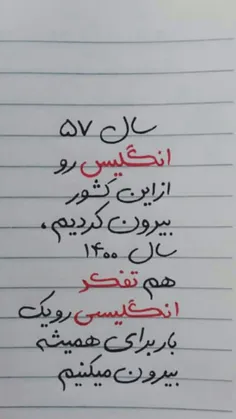 سال ۵۷
انگلیس رو
از این کشور
بیرون کردیم ،
سال ۱۴۰۰
هم تفکر
انگلیسی رو یک
بار برای همیشه
بیرون میکنیم